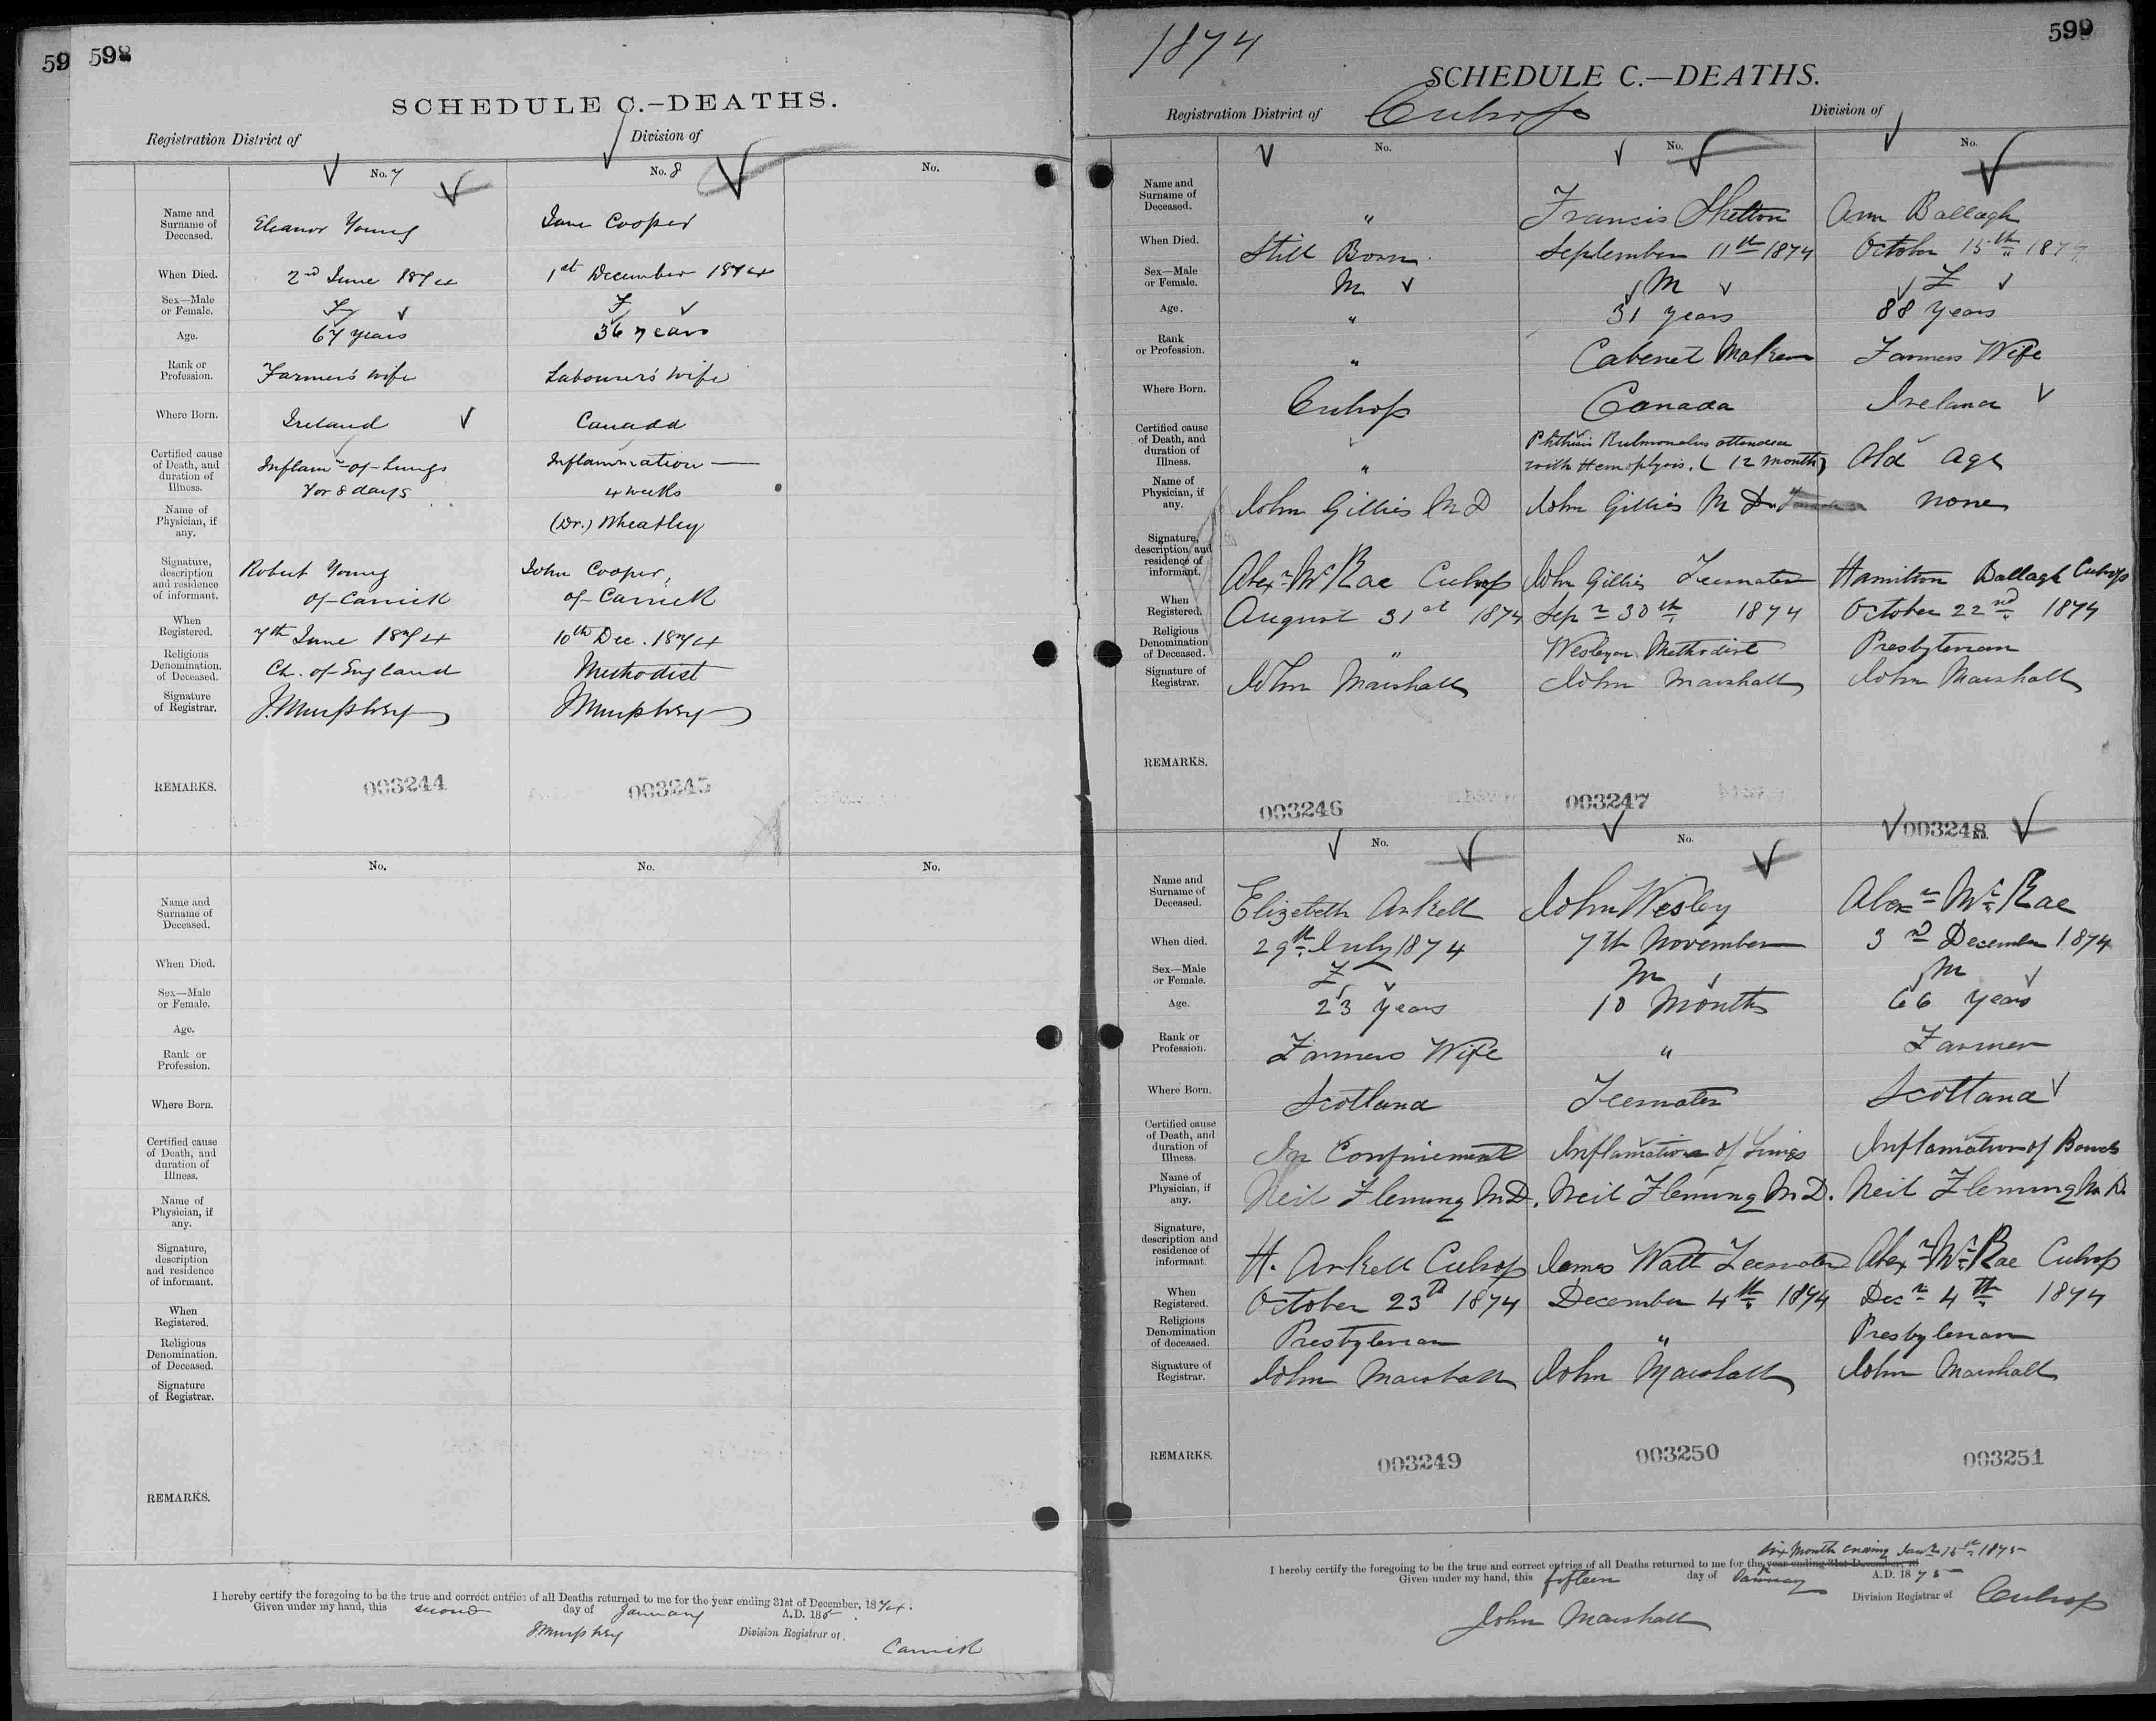 59 598
SCHEDULE C.-DEATHS.
Registration District of Division of
No. 7 No. 8 No.
Name and Surname of Deceased. Eleanor Young Jane Cooper
When Died. 2nd June 1874 1st December 1874
Sex—Male or Female. F F
Age. 67 years 36 years
Rank or Profession. Farmer's wife Labourer's wife
Where Born. Ireland Canada
Certified cause of Death, and duration of Illness. Inflamn of Lungs 7 or 8 days Inflammation — 4 weeks
Name of Physician, if any. (Dr.) Wheatley
Signature, description and residence of informant. Robert Young of Carrick John Cooper, of Carrick
When Registered. 7th June 1874 10th Dec. 1874
Religious Denomination. of Deceased. Ch. of England Methodist
Signature of Registrar. J. Murphey J Murphey
REMARKS. 003244 003245
No. No. No.
Name and Surname of Deceased.
When Died.
Sex—Male or Female.
Age.
Rank or Profession.
Where Born.
Certified cause of Death, and duration of Illness.
Name of Physician, if any.
Signature, description and residence of informant.
When Registered.
Religious Denomination. of Deceased.
Signature of Registrar.
REMARKS.
I hereby certify the foregoing to be the true and correct entries of all Deaths returned to me for the year ending 31st of December, 1874.
Given under my hand, this second day of January A.D. 185
J Murphey Division Registrar of Carrick
1874 599
SCHEDULE C.—DEATHS.
Registration District of Culross Division of
No. No. No.
Name and Surname of Deceased. " Francis Skelton Ann Ballagh
When Died. Still Born September 11th 1874 October 15th 187
Sex—Male or Female. M M F
Age. " 31 years 88 years
Rank or Profession. " Cabenet Maker Farmers Wife
Where Born. Culross Canada Ireland
Certified cause of Death, and duration of Illness. " Phthisis Pulmonalis attended with Hemoptysis. (12 months) Old Age
Name of Physician, if any. John Gillies M D John Gillies M D none
Signature, description and residence of informant. Alexr McRae Culross John Gillies Teeswater Hamilton Ballagh Culross
When Registered. August 31st 1874 Sepr 30th 1874 October 22nd 1874
Religious Denomination of Deceased. " Wesleyan Methodist Presbyterian
Signature of Registrar. John Marshall John Marshall John Marshall
REMARKS.
003246 003247 003248
No. No. No.
Name and Surname of Deceased. Elizabeth Arkell John Wesley Alexr McRae
When died. 29th July 1874 7th November 3rd December 1874
Sex—Male or Female. F M M
Age. 23 years 10 Months 66 years
Rank or Profession. Farmers Wife " Farmer
Where Born. Scotland Teeswater Scotland
Certified cause of Death, and duration of Illness. In Confinement Inflamation of Lungs Inflamation of Bowels
Name of Physician, if any. Neil Fleming M.D. Neil Fleming M.D. Neil Fleming M.D.
Signature, description and residence of informant. H. Arkell Culross James Watt Teeswater Alexr McRae Culross
When Registered. October 23d 1874 December 4th 1874 Decr 4th 1874
Religious Denomination of deceased. Presbyterian " Presbyterian
Signature of Registrar. John Marshall John Marshall John Marshall
REMARKS. 003249 003250 003251
six Month ending Jany 15th 1875
I hereby certify the foregoing to be the true and correct entries of all Deaths returned to me for the year ending 31st December, 18
Given under my hand, this fifteen day of January A.D. 1875
Division Registrar of Culross
John Marshall